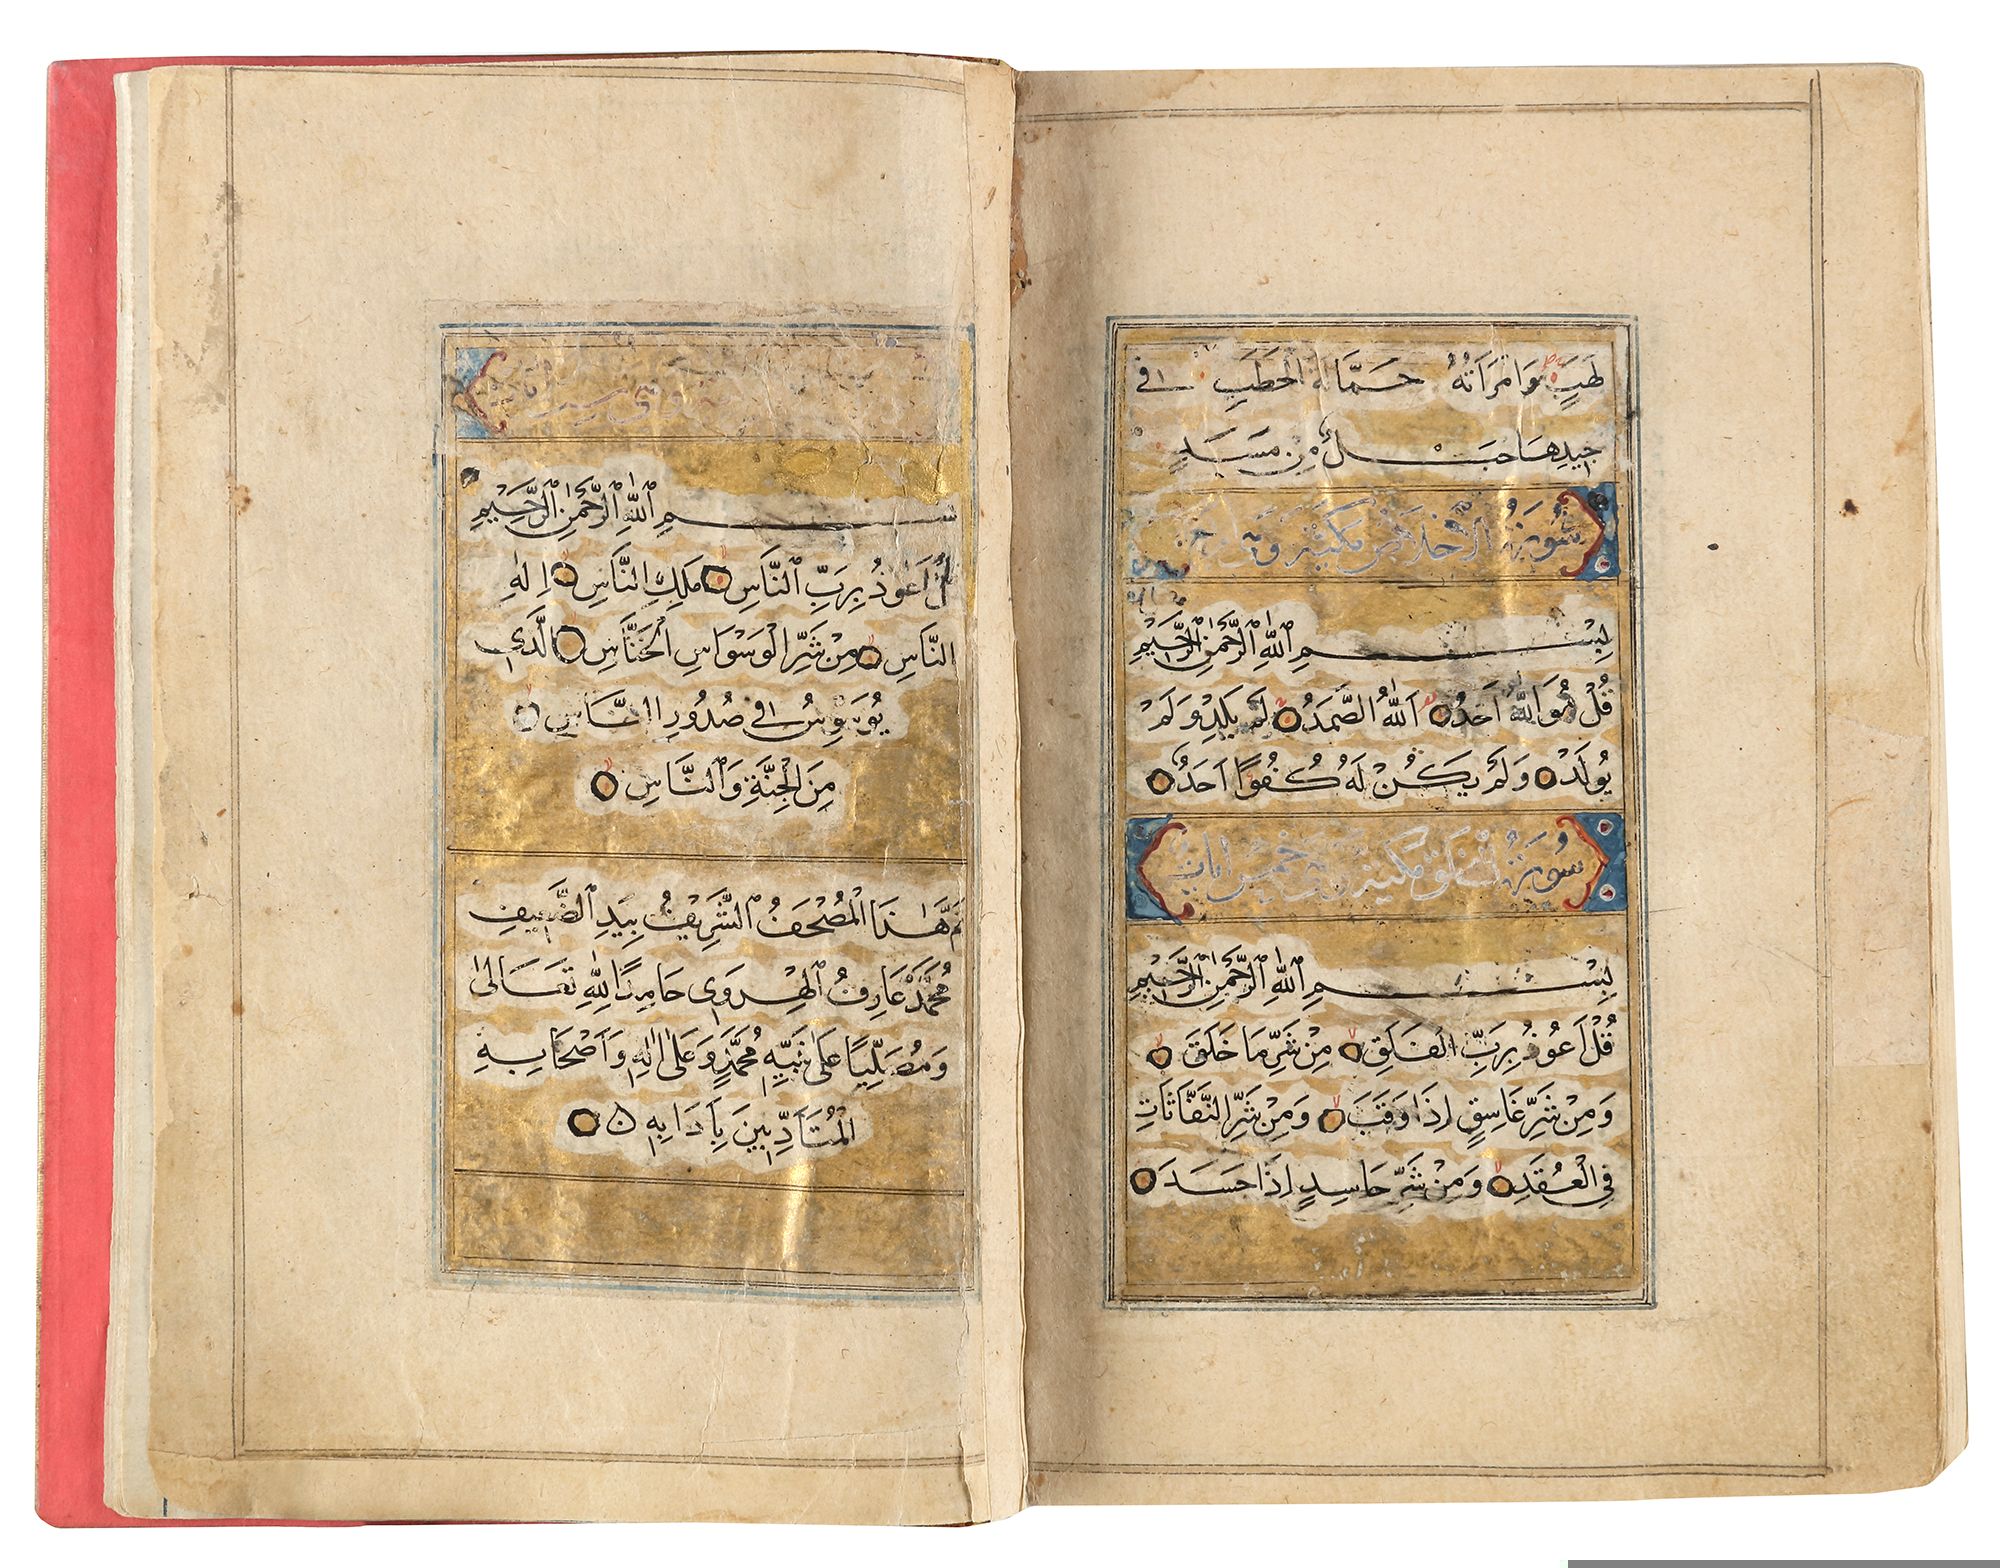 لَهَبٍ وَامْرَاَتُهُ حَمَّالَةَ الْحَطَبِ فِي
جِيدِهَا حَبْلٌ مِنْ مَسَدٍ
سُورَةُ الْاِخْلَاصِ مَكِّيَّةٌ وَهِيَ
بِسْمِ اللَّهِ الرَّحْمٰنِ الرَّحِيمِ
قُلْ هُوَ اللَّهُ اَحَدٌ اَللَّهُ الصَّمَدُ لَمْ يَلِدْ وَلَمْ
يُولَدْ وَلَمْ يَكُنْ لَهُ كُفُوًا اَحَدٌ
سُورَةُ الْفَلَقِ مَكِّيَّةٌ وَهِيَ خَمْسُ اٰيَاتٍ
بِسْمِ اللَّهِ الرَّحْمٰنِ الرَّحِيمِ
قُلْ اَعُوذُ بِرَبِّ الْفَلَقِ مِنْ شَرِّ مَا خَلَقَ
وَمِنْ شَرِّ غَاسِقٍ اِذَا وَقَبَ وَمِنْ شَرِّ النَّفَّاثَاتِ
فِي الْعُقَدِ وَمِنْ شَرِّ حَاسِدٍ اِذَا حَسَدَ
بِسْمِ اللَّهِ الرَّحْمٰنِ الرَّحِيمِ
قُلْ اَعُوذُ بِرَبِّ النَّاسِ مَلِكِ النَّاسِ اِلٰهِ
النَّاسِ مِنْ شَرِّ الْوَسْوَاسِ الْخَنَّاسِ الَّذِي
يُوَسْوِسُ فِي صُدُورِ النَّاسِ
مِنَ الْجِنَّةِ وَالنَّاسِ
تَمَّ هٰذَا الْمُصْحَفُ الشَّرِيفُ بِيَدِ الضَّعِيفِ
مُحَمَّدْ عَارِفُ الْهِرَوِي حَامِدًا لِلّٰهِ تَعَالٰى
وَمُصَلِّيًا عَلٰى نَبِيِّهِ مُحَمَّدٍ وَعَلٰى اٰلِهِ وَاَصْحَابِهِ
الْمُتَاَدِّبِينَ بِاٰدَابِهِ